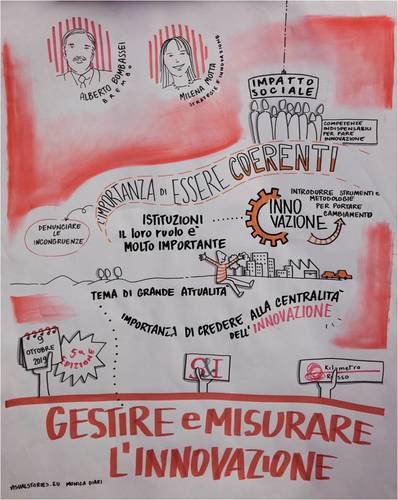 ALBERTO BOMBASSEI
BREMBO
MILENA MOTTA
STRATEGIE E INNOVAZIONE
IMPATTO
SOCIALE
COMPETENZE
INDISPENSABILI
PER FARE
INNOVAZIONE
L'IMPORTANZA DI ESSERE COERENTI
DENUNCIARE
LE
INCONGRUENZE
ISTITUZIONI
IL loro ruolo è
MOLTO IMPORTANTE
INNO
VAZIONE
INTRODURRE STRUMENTI e
METODOLOGIE
PER PORTARE
CAMBIAMENTO
TEMA DI GRANDE ATTUALITÀ
IMPORTANZA DI CREDERE ALLA CENTRALITÀ
DELL'INNOVAZIONE
9
OTTOBRE
2019
5ª
EDIZIONE
Kilometro
Rosso
GESTIRE e MISURARE
L'INNOVAZIONE
VISUALSTORIES.EU MONICA DIARI